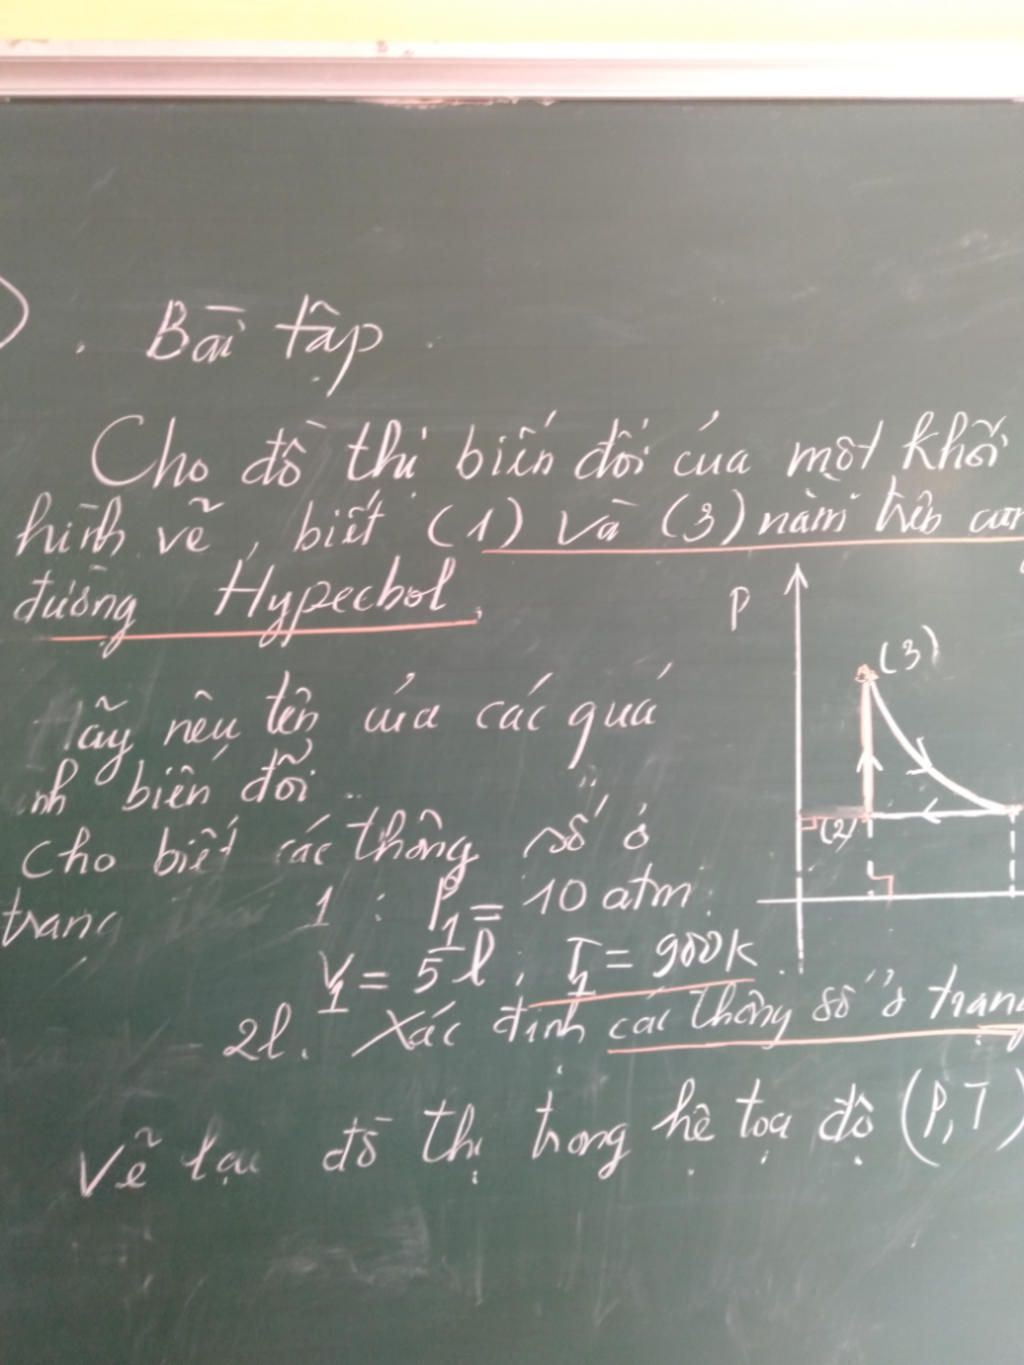 . Bài tập.
Cho đồ thị biến đổi của một khối
hình vẽ, biết (1) và (3) nằm trên
đường Hypecbol.
P
(3)
Hãy nêu tên của các quá
nh biến đổi.
(2)
Cho biết các thông số ở
trạng 1 : P₁ = 10 atm.
V₁ = 5 l ; T₁ = 900K.
2l. Xác định các thông số ở trạng
Vẽ lại đồ thị trong hệ tọa độ (P,T)